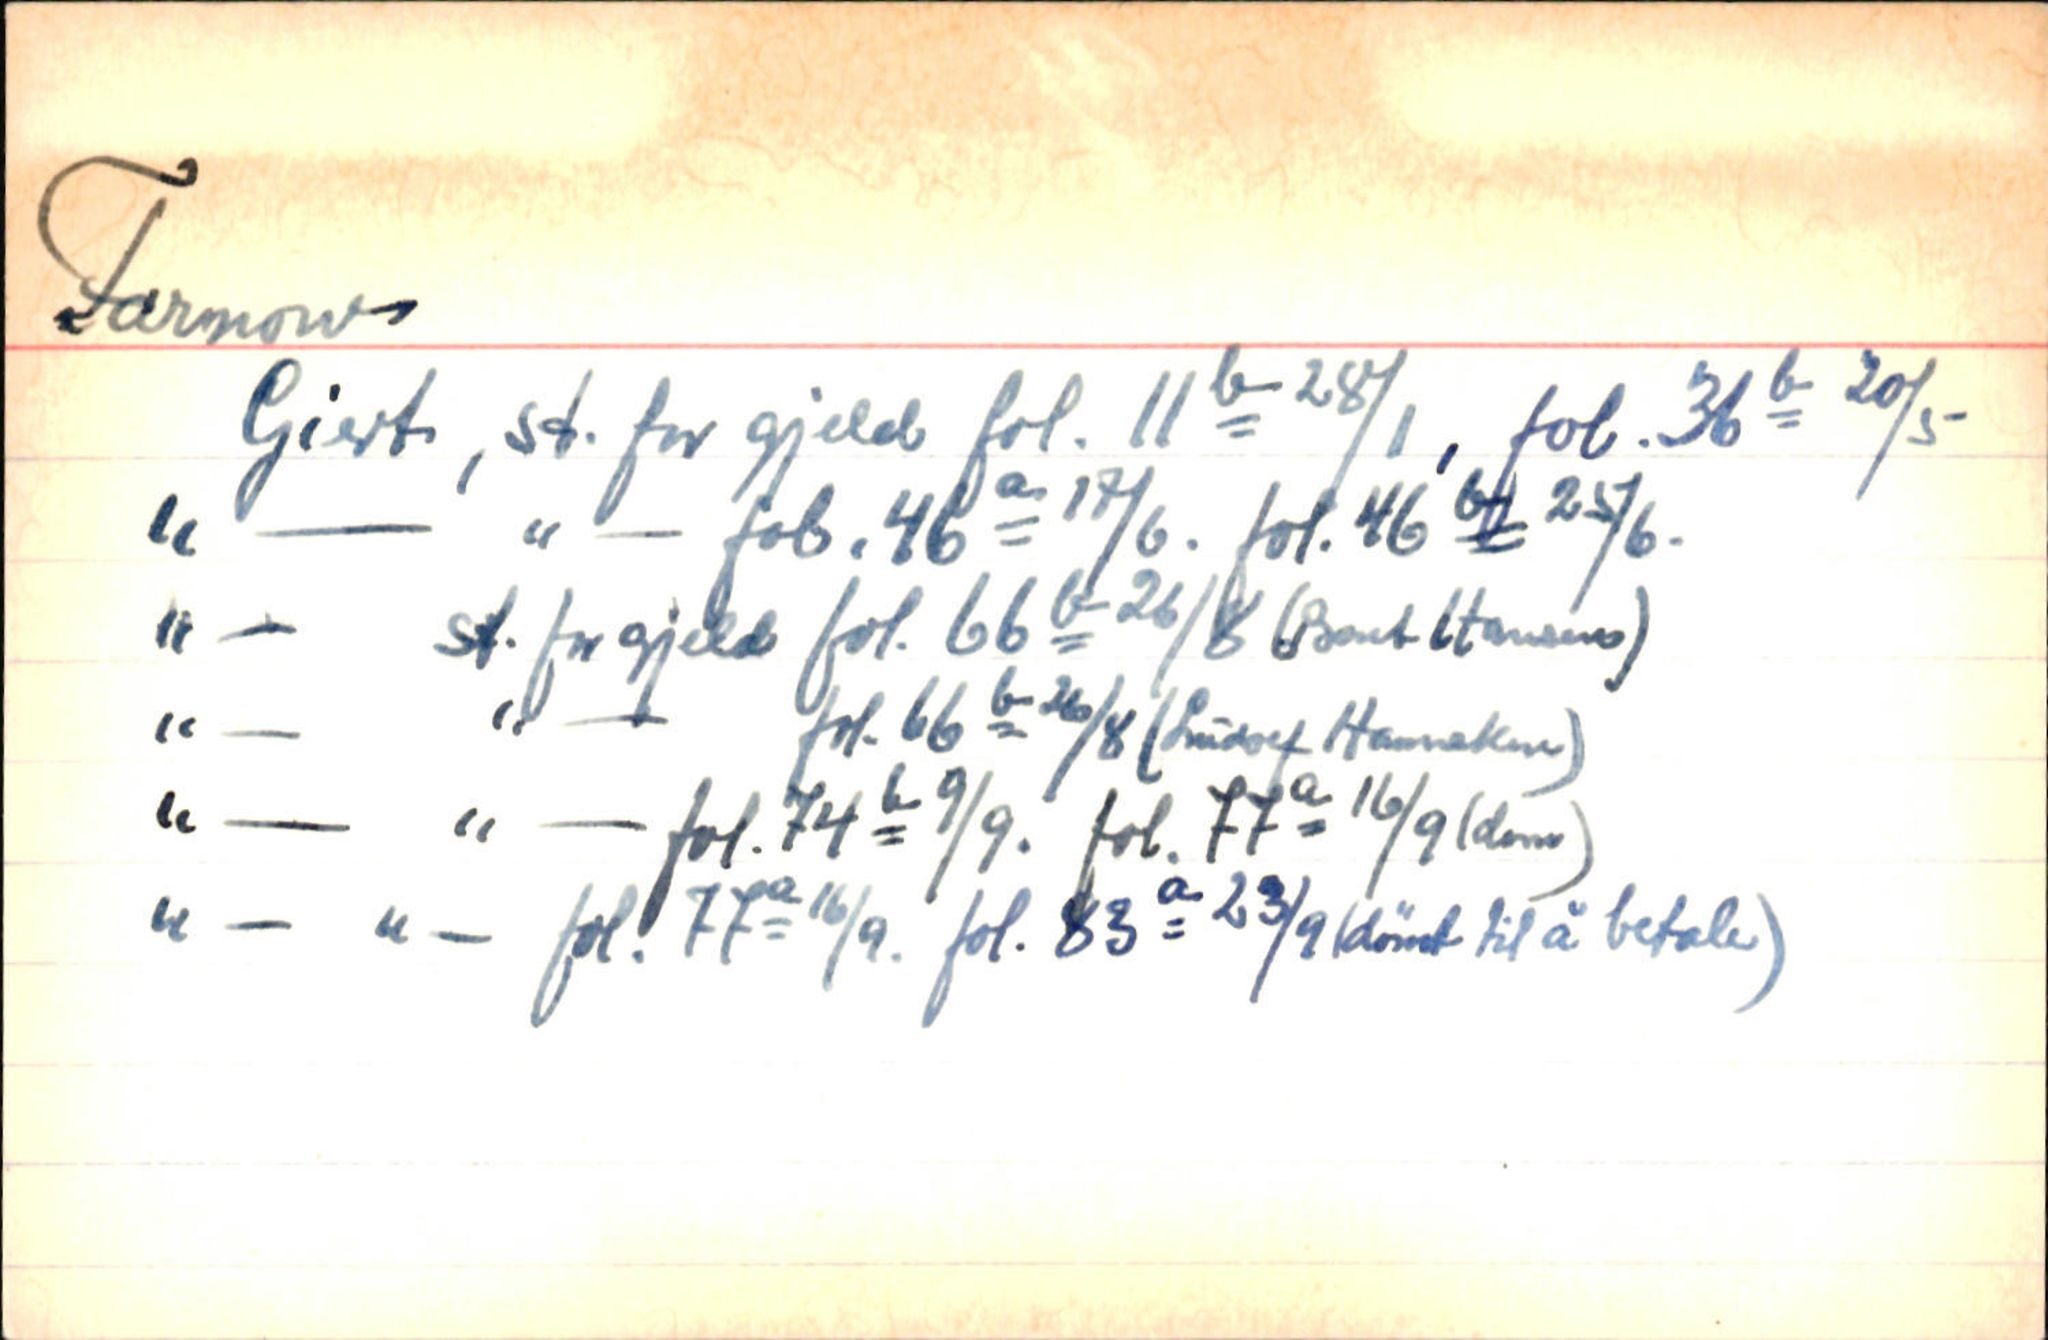 Tarmow
Giert, st. for gjeld fol. 11b 28/1, fol. 36b 20/5-
" — " — fol. 46a 17/6. fol. 46b 25/6.
" — st. for gjeld fol. 66b 26/8 (Bent Hansens)
" — " — fol. 66b 26/8 (Ludolf Hanneken)
" — " — fol. 74b 9/9. fol. 77a 16/9 (dom)
" — " — fol. 77a 16/9. fol. 83a 23/9 (dömt til å betale)